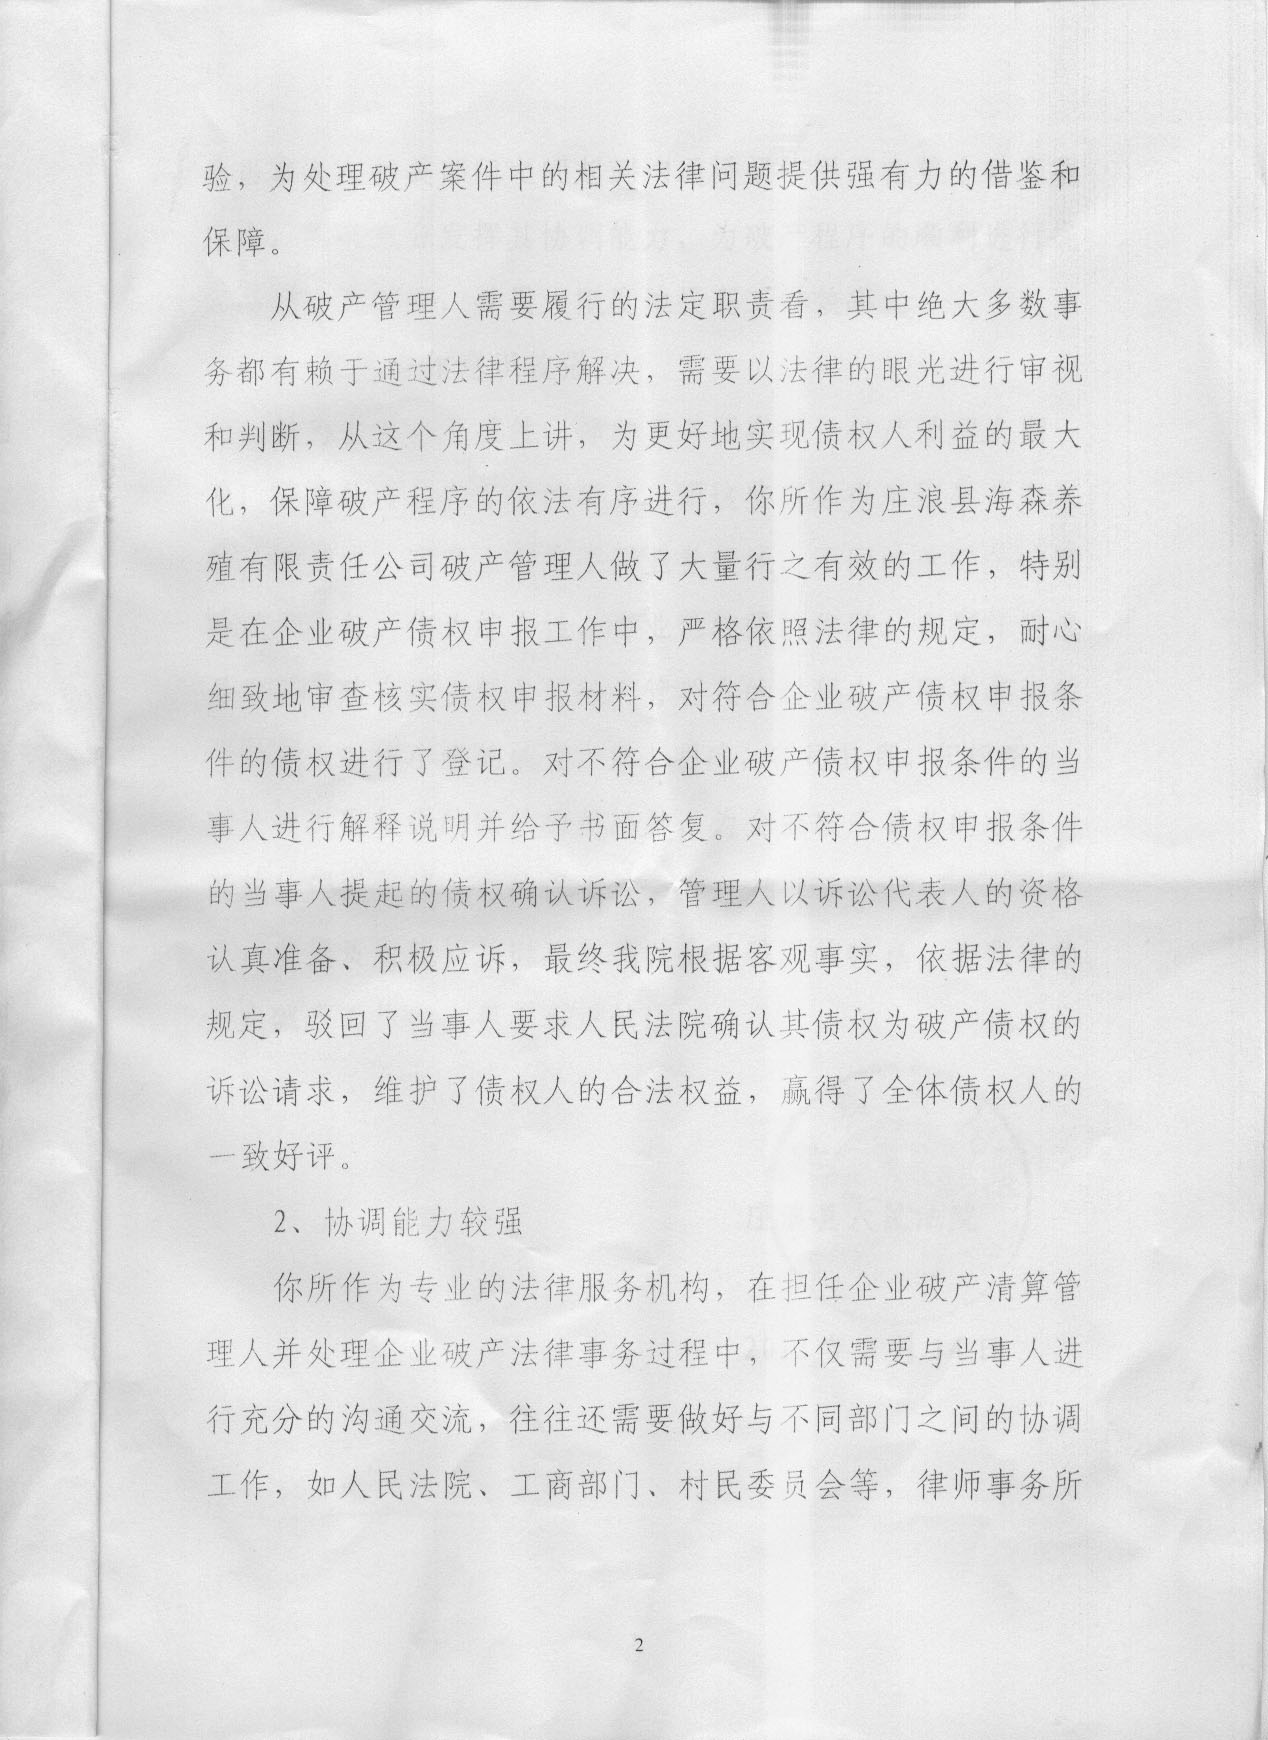 验，为处理破产案件中的相关法律问题提供强有力的借鉴和
保障。
从破产管理人需要履行的法定职责看，其中绝大多数事
务都有赖于通过法律程序解决，需要以法律的眼光进行审视
和判断，从这个角度上讲，为更好地实现债权人利益的最大
化，保障破产程序的依法有序进行，你所作为庄浪县海森养
殖有限责任公司破产管理人做了大量行之有效的工作，特别
是在企业破产债权申报工作中，严格依照法律的规定，耐心
细致地审查核实债权申报材料，对符合企业破产债权申报条
件的债权进行了登记。对不符合企业破产债权申报条件的当
事人进行解释说明并给予书面答复。对不符合债权申报条件
的当事人提起的债权确认诉讼，管理人以诉讼代表人的资格
认真准备、积极应诉，最终我院根据客观事实，依据法律的
规定，驳回了当事人要求人民法院确认其债权为破产债权的
诉讼请求，维护了债权人的合法权益，赢得了全体债权人的
一致好评。
2、协调能力较强
你所作为专业的法律服务机构，在担任企业破产清算管
理人并处理企业破产法律事务过程中，不仅需要与当事人进
行充分的沟通交流，往往还需要做好与不同部门之间的协调
工作，如人民法院、工商部门、村民委员会等，律师事务所
2